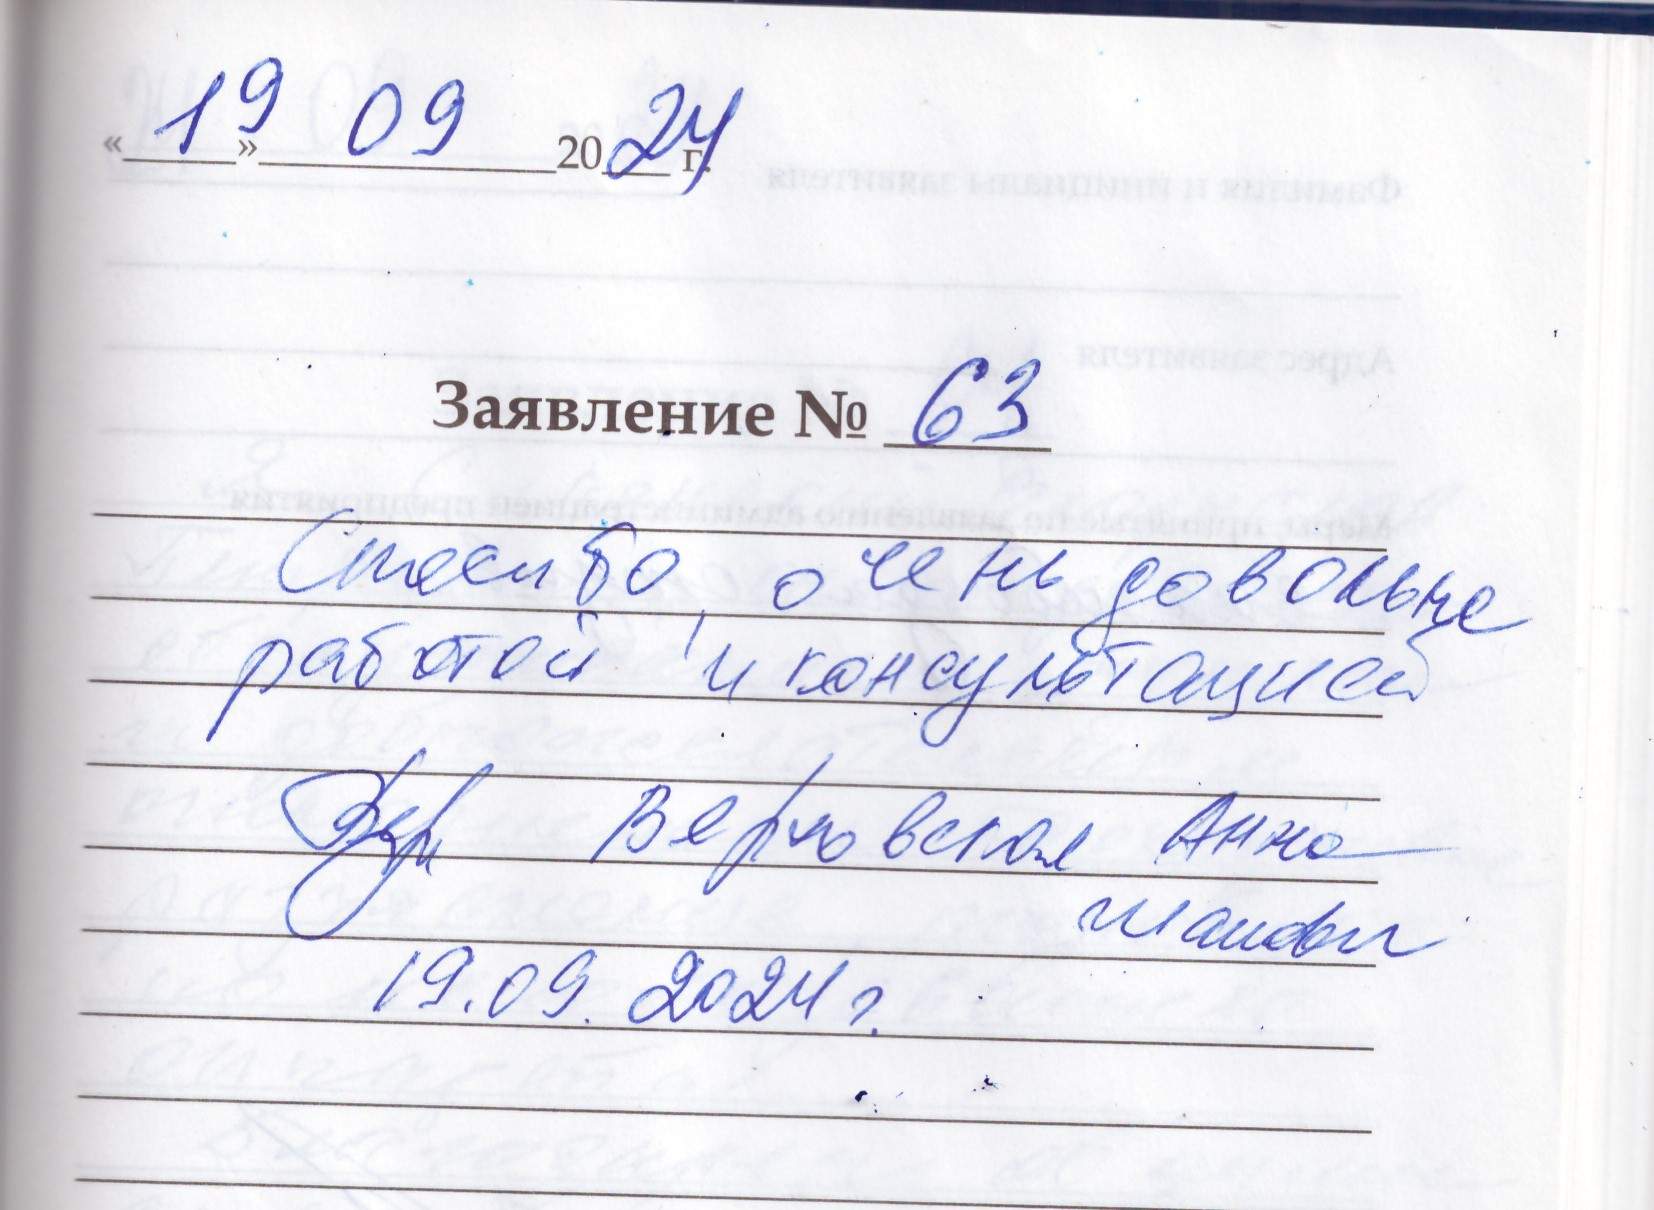 «19» 09 2024 г.
Заявление № 63
Спасибо, очень довольна
работой и консультацией
Верховская Анна
19.09.2024 г.